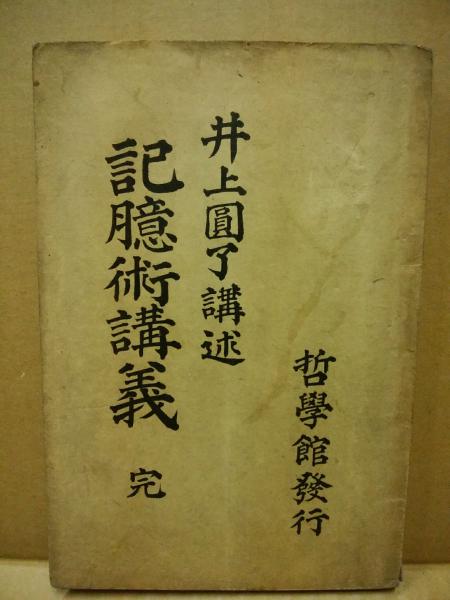 哲學館發行
井上圓了講述
記臆術講義 完